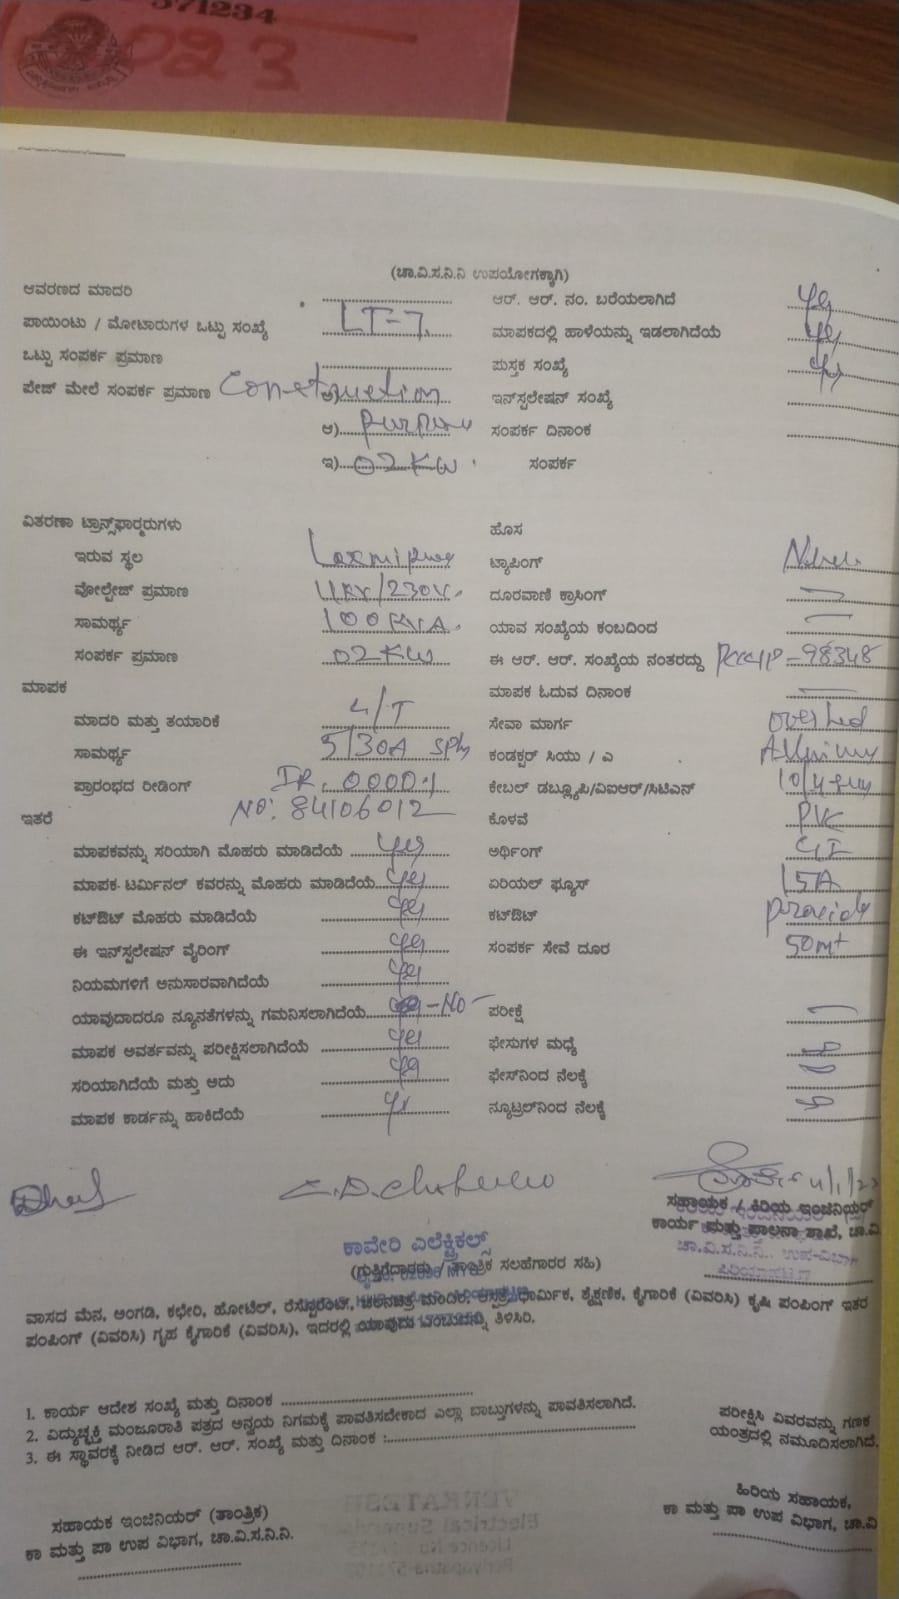 571234
023
(ಚಾ.ವಿ.ಸ.ನಿ.ನಿ ಉಪಯೋಗಕ್ಕಾಗಿ)
ಆವರಣದ ಮಾದರಿ ಆರ್. ಆರ್. ನಂ. ಬರೆಯಲಾಗಿದೆ yes
ಪಾಯಿಂಟು / ಮೋಟಾರುಗಳ ಒಟ್ಟು ಸಂಖ್ಯೆ LT-7 ಮಾಪಕದಲ್ಲಿ ಹಾಳೆಯನ್ನು ಇಡಲಾಗಿದೆಯೆ yes
ಒಟ್ಟು ಸಂಪರ್ಕ ಪ್ರಮಾಣ ಪುಸ್ತಕ ಸಂಖ್ಯೆ yes
ಪೇಜ್ ಮೇಲೆ ಸಂಪರ್ಕ ಪ್ರಮಾಣ Construction ಇನ್‌ಸ್ಟಲೇಷನ್ ಸಂಖ್ಯೆ
ಆ) purpose ಸಂಪರ್ಕ ದಿನಾಂಕ
ಇ) 02 KW ಸಂಪರ್ಕ
ವಿತರಣಾ ಟ್ರಾನ್ಸ್‌ಫಾರ್ಮರುಗಳು ಹೊಸ
ಇರುವ ಸ್ಥಳ ಟ್ಯಾಪಿಂಗ್
ವೋಲ್ಟೇಜ್ ಪ್ರಮಾಣ 11KV/230V. ದೂರವಾಣಿ ಕ್ರಾಸಿಂಗ್
ಸಾಮರ್ಥ್ಯ 100 KVA. ಯಾವ ಸಂಖ್ಯೆಯ ಕಂಬದಿಂದ
ಸಂಪರ್ಕ ಪ್ರಮಾಣ 02 KW ಈ ಆರ್. ಆರ್. ಸಂಖ್ಯೆಯ ನಂತರದ್ದು -98348
ಮಾಪಕ ಮಾಪಕ ಓದುವ ದಿನಾಂಕ
ಮಾದರಿ ಮತ್ತು ತಯಾರಿಕೆ L/T ಸೇವಾ ಮಾರ್ಗ
ಸಾಮರ್ಥ್ಯ 5/30A SPh ಕಂಡಕ್ಟರ್ ಸಿಯು / ಎ
ಪ್ರಾರಂಭದ ರೀಡಿಂಗ್ IR. 0000.1 ಕೇಬಲ್ ಡಬ್ಲ್ಯೂಪಿ/ವಿಐಆರ್/ಸಿಟಿಎಸ್
NO: 84106012
ಇತರೆ ಕೊಳವೆ PVC
ಮಾಪಕವನ್ನು ಸರಿಯಾಗಿ ಮೊಹರು ಮಾಡಿದೆಯೆ yes ಅರ್ಥಿಂಗ್ GI
ಮಾಪಕ ಟರ್ಮಿನಲ್ ಕವರನ್ನು ಮೊಹರು ಮಾಡಿದೆಯೆ yes ಏರಿಯಲ್ ಫ್ಯೂಸ್ 15A
ಕಟ್‌ಔಟ್ ಮೊಹರು ಮಾಡಿದೆಯೆ yes ಕಟ್‌ಔಟ್
ಈ ಇನ್‌ಸ್ಟಲೇಷನ್ ವೈರಿಂಗ್ yes ಸಂಪರ್ಕ ಸೇವೆ ದೂರ 50mt
ನಿಯಮಗಳಿಗೆ ಅನುಸಾರವಾಗಿದೆಯೆ yes
ಯಾವುದಾದರೂ ನ್ಯೂನತೆಗಳನ್ನು ಗಮನಿಸಲಾಗಿದೆಯೆ -NO- ಪರೀಕ್ಷೆ
ಮಾಪಕ ಆವರ್ತವನ್ನು ಪರೀಕ್ಷಿಸಲಾಗಿದೆಯೆ yes ಫೇಸುಗಳ ಮಧ್ಯೆ
ಸರಿಯಾಗಿದೆಯೆ ಮತ್ತು ಅದು yes ಫೇಸ್‌ನಿಂದ ನೆಲಕ್ಕೆ
ಮಾಪಕ ಕಾರ್ಡನ್ನು ಹಾಕಿದೆಯೆ ನ್ಯೂಟ್ರಲ್‌ನಿಂದ ನೆಲಕ್ಕೆ
ಸಹಾಯಕ / ಕಿರಿಯ ಇಂಜಿನಿಯರ್
ಕಾರ್ಯ ಮತ್ತು ಪಾಲನಾ ಶಾಖೆ, ಚಾ.ವಿ
ಚಾ.ವಿ.ಸ.ನಿ.ನಿ., ಉಪ-ವಿಭಾಗ
ಪಿರಿಯಾಪಟ್ಟಣ
ಕಾವೇರಿ ಎಲೆಕ್ಟ್ರಿಕಲ್ಸ್
(ಗುತ್ತಿಗೆದಾರರು / ತಾಂತ್ರಿಕ ಸಲಹೆಗಾರರ ಸಹಿ)
ವಾಸದ ಮನೆ, ಅಂಗಡಿ, ಕಛೇರಿ, ಹೋಟೆಲ್, ರೆಸ್ಟೊರೆಂಟ್, ಚಲನಚಿತ್ರ ಮಂದಿರ, ಆಸ್ಪತ್ರೆ, ಧಾರ್ಮಿಕ, ಶೈಕ್ಷಣಿಕ, ಕೈಗಾರಿಕೆ (ವಿವರಿಸಿ) ಕೃಷಿ ಪಂಪಿಂಗ್ ಇತರ
ಪಂಪಿಂಗ್ (ವಿವರಿಸಿ) ಗೃಹ ಕೈಗಾರಿಕೆ (ವಿವರಿಸಿ), ಇದರಲ್ಲಿ ಯಾವುದು ತಿಳಿಸಿರಿ.
1. ಕಾರ್ಯ ಆದೇಶ ಸಂಖ್ಯೆ ಮತ್ತು ದಿನಾಂಕ
2. ವಿದ್ಯುಚ್ಛಕ್ತಿ ಮಂಜೂರಾತಿ ಪತ್ರದ ಅನ್ವಯ ನಿಗಮಕ್ಕೆ ಪಾವತಿಸಬೇಕಾದ ಎಲ್ಲಾ ಬಾಬ್ತುಗಳನ್ನು ಪಾವತಿಸಲಾಗಿದೆ.
3. ಈ ಸ್ಥಾವರಕ್ಕೆ ನೀಡಿದ ಆರ್. ಆರ್. ಸಂಖ್ಯೆ ಮತ್ತು ದಿನಾಂಕ :
ಪರೀಕ್ಷಿಸಿ ವಿವರವನ್ನು ಗಣಕ
ಯಂತ್ರದಲ್ಲಿ ನಮೂದಿಸಲಾಗಿದೆ.
ಸಹಾಯಕ ಇಂಜಿನಿಯರ್ (ತಾಂತ್ರಿಕ)
ಕಾ ಮತ್ತು ಪಾ ಉಪ ವಿಭಾಗ, ಚಾ.ವಿ.ಸ.ನಿ.ನಿ.
ಹಿರಿಯ ಸಹಾಯಕ,
ಕಾ ಮತ್ತು ಪಾ ಉಪ ವಿಭಾಗ, ಚಾ.ವಿ